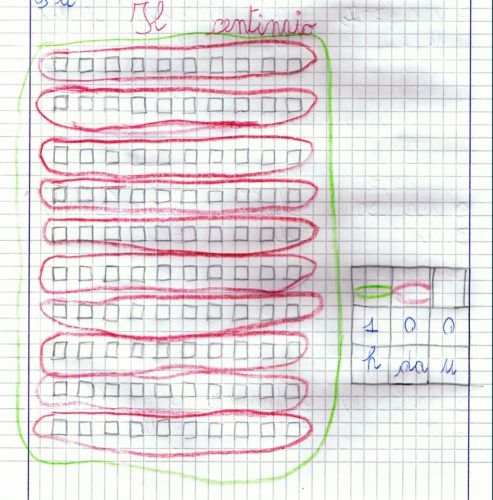 Il centinaio
1 0 0
h da u